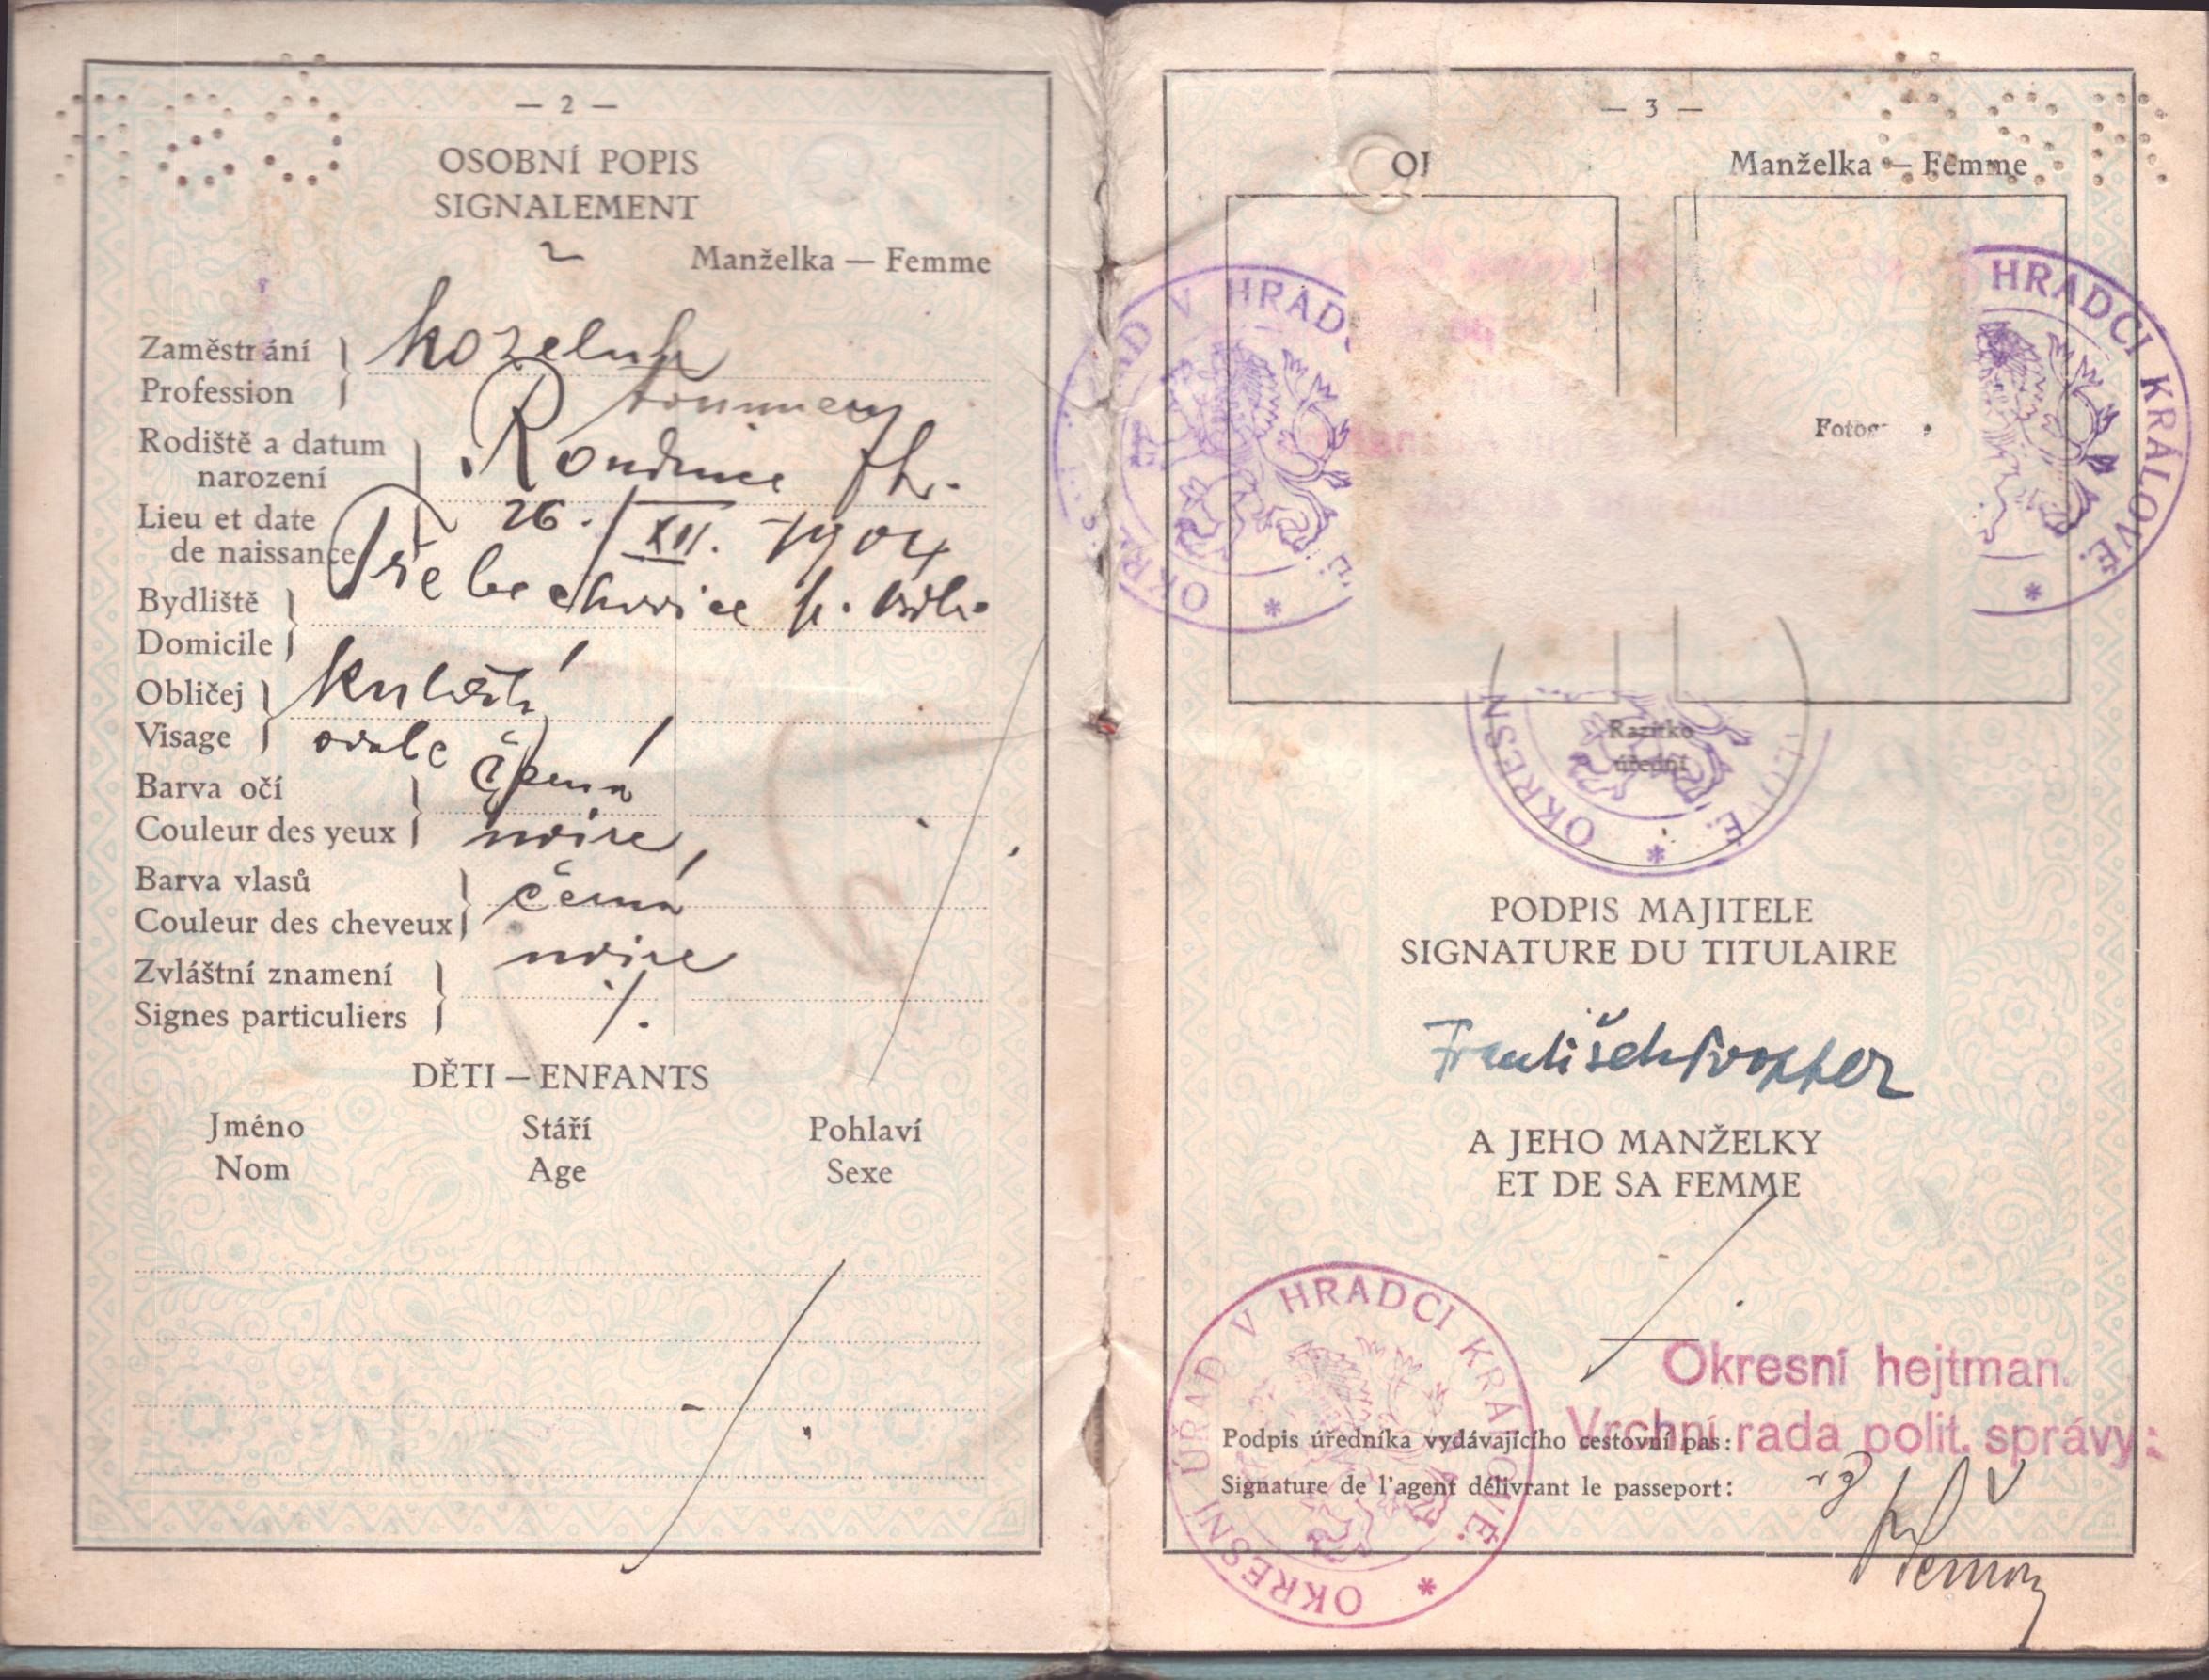 — 2 —
OSOBNÍ POPIS
SIGNALEMENT
Manželka — Femme
Zaměstnání
koželuh
Profession
Rodiště a datum
narození
Roudnice
Lieu et date
26./XII. 1904
de naissance
Bydliště
Třebechovice p.
Domicile
Obličej
kulatý
Visage
ovale
Barva očí
černá
Couleur des yeux
noire
Barva vlasů
černá
Couleur des cheveux
noire
Zvláštní znamení
Signes particuliers
./.
DĚTI — ENFANTS
Jméno Stáří Pohlaví
Nom Age Sexe
— 3 —
Manželka — Femme
V HRAD
OKR
HRADCI KRÁLOVÉ
Razítko
úřední
OKRESN
PODPIS MAJITELE
SIGNATURE DU TITULAIRE
František Propper
A JEHO MANŽELKY
ET DE SA FEMME
OKRESNÍ ÚŘAD V HRADCI KRÁLOVÉ
Okresní hejtman.
Vrchní rada polit. správy:
Podpis úředníka vydávajícího cestovní pas:
Signature de l'agent délivrant le passeport: